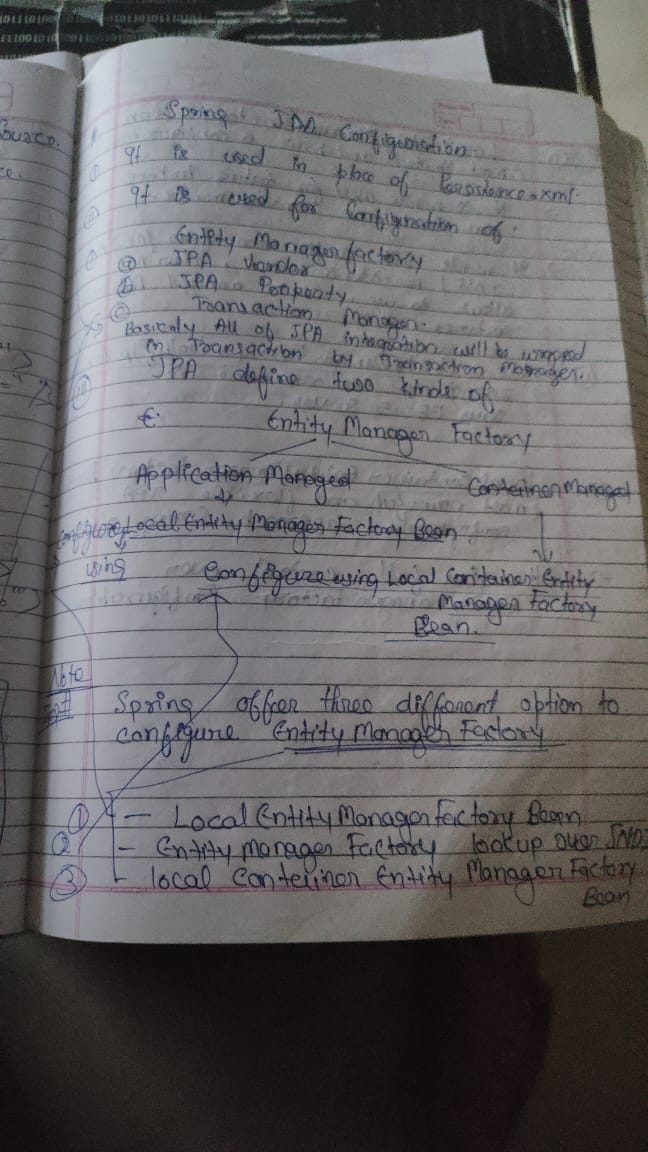 Spring JPA Configuration
① It is used in place of Persistence.xml.
② It is used for Configuration of:
Entity Manager factory
ⓐ JPA Vendor
ⓑ JPA Property
ⓒ Transaction Manager.
Basicaly All of JPA integration will be wrapped
in Transaction by Transaction Manager.
JPA define two kinds of
Entity Manager Factory
Application Managed Container Managed
Configure Local Entity Manager Factory Bean
using Configure using Local Container Entity
Manager Factory
Bean.
Note
Spring offer three different option to
configure Entity Manager Factory
① – Local Entity Manager Factory Bean
② – Entity Manager Factory lookup over JND
③ – local Conteiner Entity Manager Factory
Bean